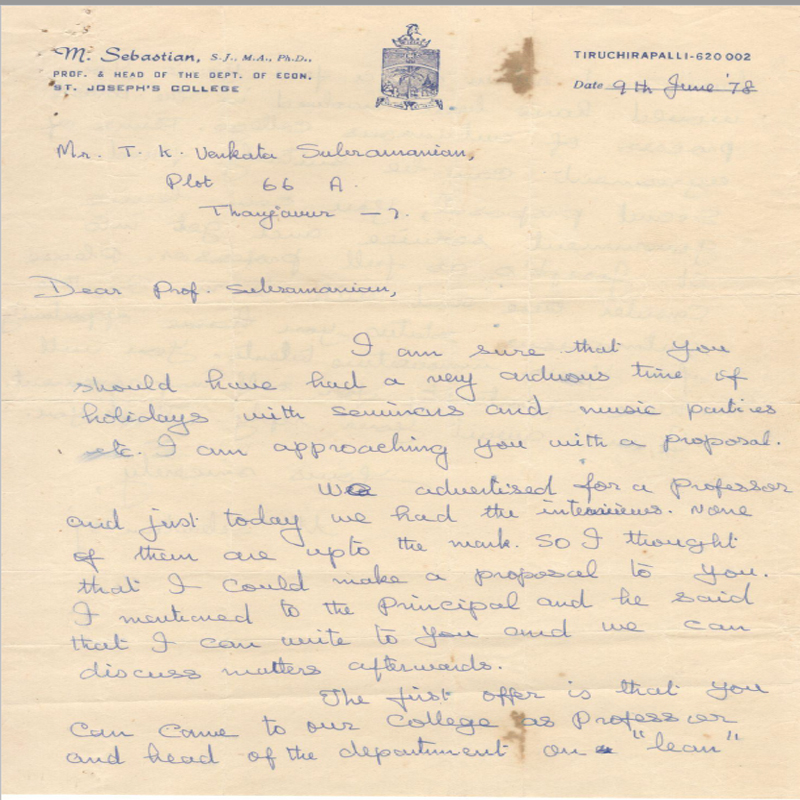 M. Sebastian, S.J., M.A., Ph.D.,
PROF. & HEAD OF THE DEPT. OF ECON.
ST. JOSEPH'S COLLEGE
TIRUCHIRAPALLI-620 002
Date 9th June '78
Mr. T. K. Venkata Subramanian,
Plot 66 A.
Thanjavur - 7.
Dear Prof. Subramanian,
I am sure that you
should have had a very arduous time of
holidays with seminars and music parties
etc. I am approaching you with a proposal.
We advertised for a Professor
and just today we had the interviews. None
of them are upto the mark. So I thought
that I could make a proposal to you.
I mentioned to the Principal and he said
that I can write to you and we can
discuss matters afterwards.
The first offer is that you
can come to our College as Professor
and head of the department on "lean"